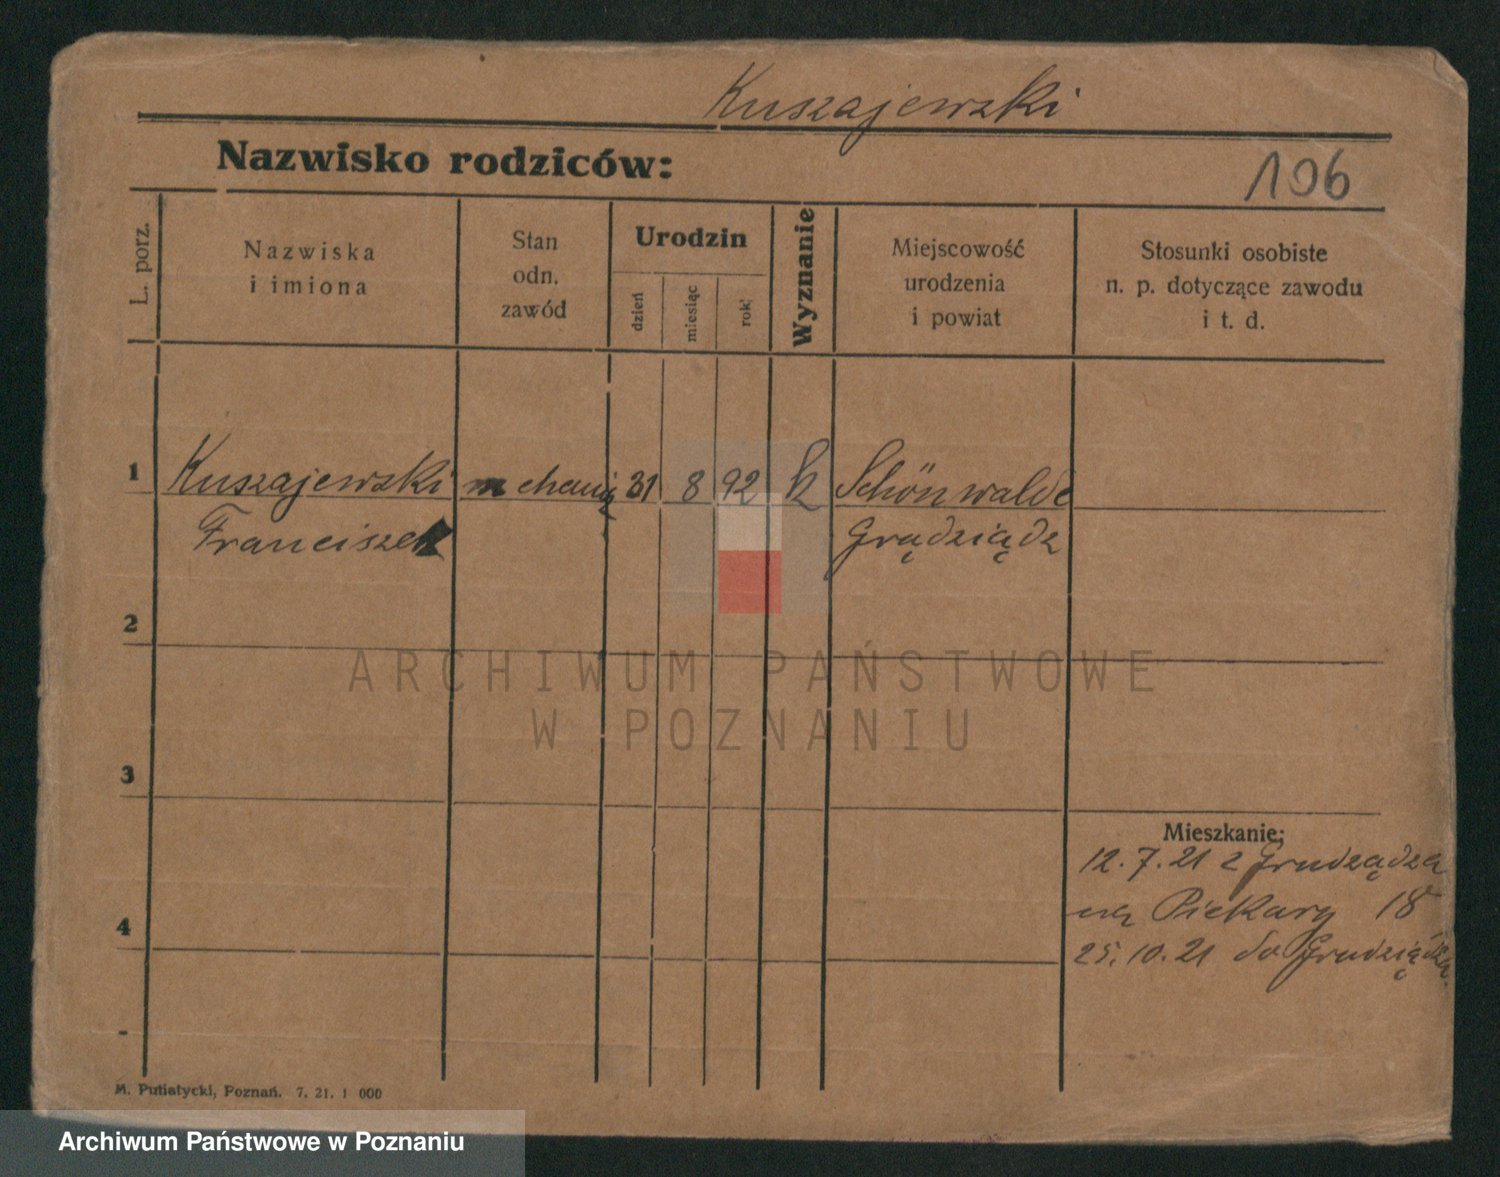 Kuszajewski
Nazwisko rodziców:
106
L. porz.
Nazwiska
i imiona
Stan
odn.
zawód
Urodzin
dzień
miesiąc
rok
Wyznanie
Miejscowość
urodzenia
i powiat
Stosunki osobiste
n. p. dotyczące zawodu
i t. d.
1 Kuszajewski 31 8 92 k Schönwalde
Franciszek Grądziądz
2
3
4
-
Mieszkanie:
12.7.21 z Grudządza
na Piekary 18
25.10.21 do Grudziądza
M. Putiatycki, Poznań. 7. 21. 1 000
ARCHIWUM PAŃSTWOWE
W POZNANIU
Archiwum Państwowe w Poznaniu